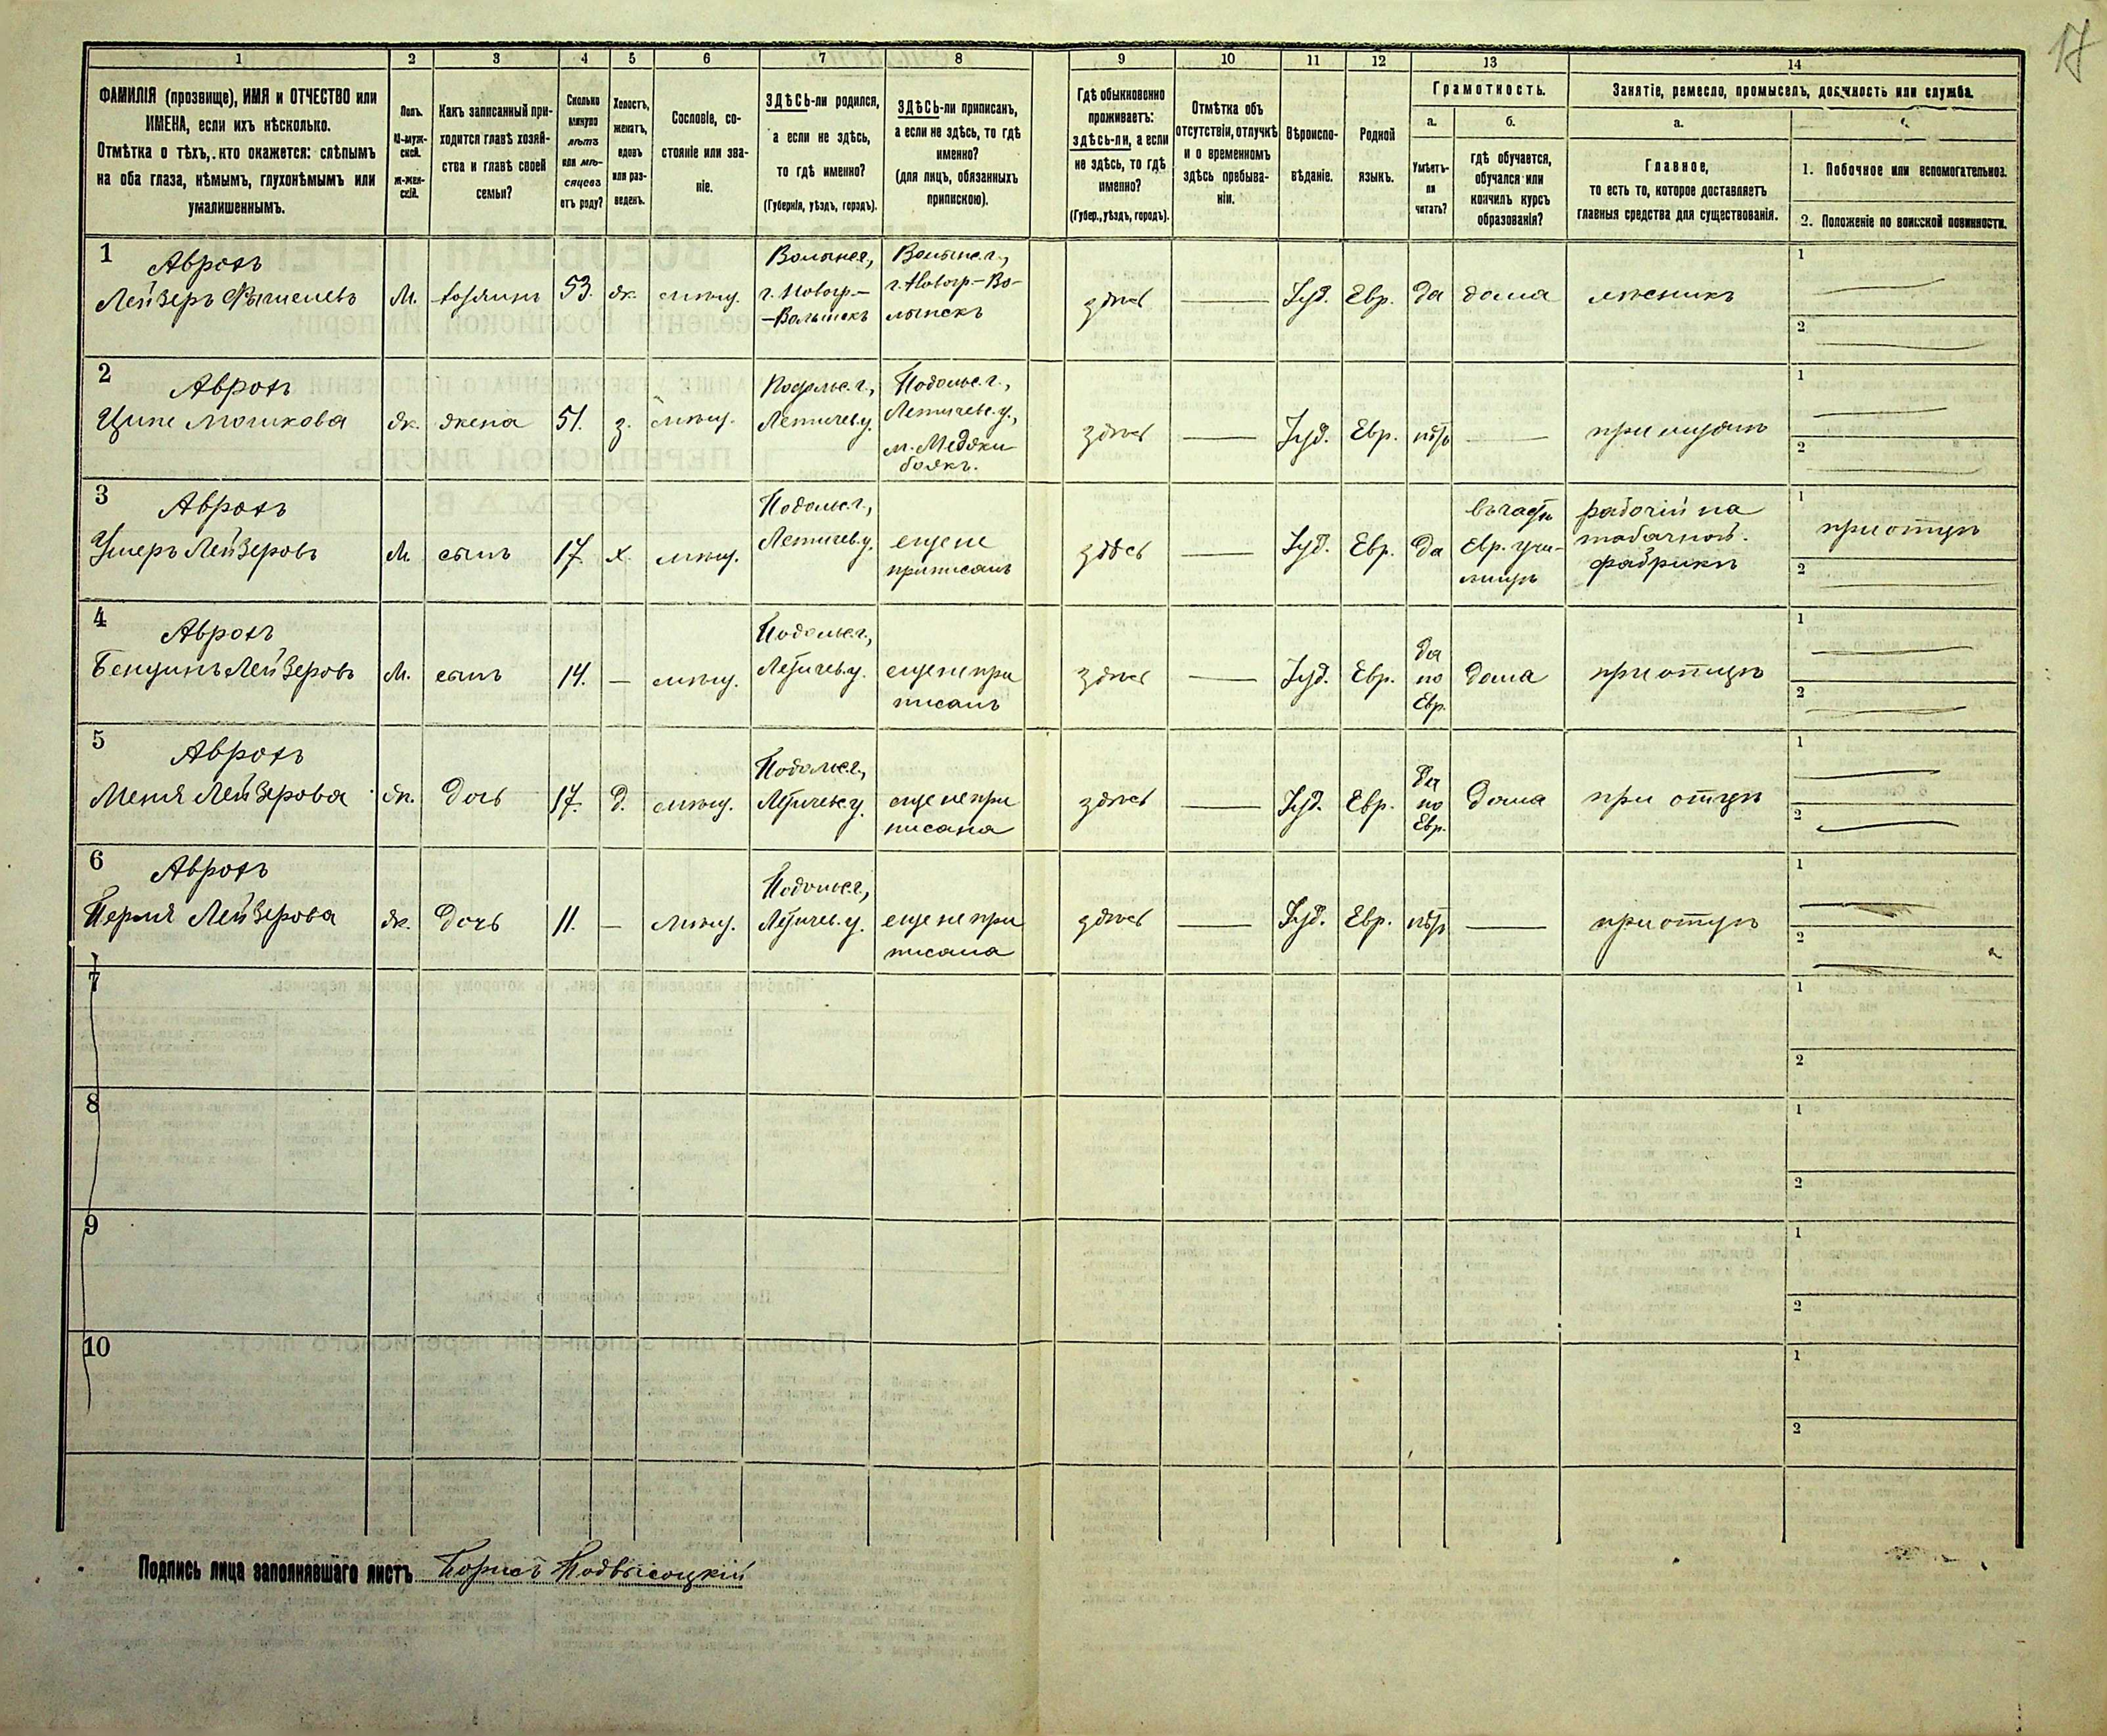 17
1 2 3 4 5 6 7 8 9 10 11 12 13 14
ФАМИЛІЯ (прозвище), ИМЯ и ОТЧЕСТВО или
ИМЕНА, если ихъ нѣсколько.
Отмѣтка о тѣхъ, кто окажется: слѣпымъ
на оба глаза, нѣмымъ, глухонѣмымъ или
умалишеннымъ.
Полъ.
М-муж-
ской.
Ж-жен-
скій.
Какъ записанный при-
ходится главѣ хозяй-
ства и главѣ своей
семьи?
Сколько
минуло
лѣтъ
или мѣ-
сяцевъ
отъ роду?
Холостъ,
женатъ,
вдовъ
или раз-
веденъ.
Сословіе, со-
стояніе или зва-
ніе.
ЗДѢСЬ-ли родился,
а если не здѣсь,
то гдѣ именно?
(Губернія, уѣздъ, городъ).
ЗДѢСЬ-ли приписанъ,
а если не здѣсь, то гдѣ
именно?
(для лицъ, обязанныхъ
припискою).
Гдѣ обыкновенно
проживаетъ:
здѣсь-ли, а если
не здѣсь, то гдѣ
именно?
(Губер., уѣздъ, городъ).
Отмѣтка объ
отсутствіи, отлучкѣ
и о временномъ
здѣсь пребыва-
ніи.
Вѣроиспо-
вѣданіе.
Родной
языкъ.
Грамотность.
а.
Умѣетъ-
ли
читать?
б.
гдѣ обучается,
обучался или
кончилъ курсъ
образованія?
Занятіе, ремесло, промыселъ, должность или служба.
а.
Главное,
то есть то, которое доставляетъ
главныя средства для существованія.
1. Побочное или вспомогательное.
2. Положеніе по воинской повинности.
1
Аврохъ
Лейзеръ
М.
53.
ж.
мѣщ.
г. Новогр.-
-Волынскъ
г. Новогр.-Во-
лынскъ
здѣсь
Іуд.
Евр.
да
дома
1
2
2
Аврохъ
Ципе Мошкова
ж.
жена
51.
з.
мѣщ.
Подольс. г.,
Летичев. у.
Подольс. г.,
Летичевс. у.,
м. Меджи
божъ.
здѣсь
Іуд.
Евр.
нѣтъ
при мужѣ
1
2
3
Аврохъ
Ушеръ Лейзеровъ
М.
сынъ
17.
х.
мѣщ.
Подольс. г.,
Летичев. у.
еще не
приписанъ
здѣсь
Іуд.
Евр.
да
Евр. учи-
лищѣ
рабочій на
табачной.
фабрикѣ
1
при отцѣ
2
4
Аврохъ
Бенционъ Лейзеровъ
М.
сынъ
14.
—
мѣщ.
Подольс. г.,
Летичев. у.
еще не при
писанъ
здѣсь
Іуд.
Евр.
да
по
Евр.
дома
при отцѣ
1
2
5
Аврохъ
Меня Лейзерова
ж.
дочь
17.
д.
мѣщ.
Подольс. г.,
Летичев. у.
еще не при
писана
здѣсь
Іуд.
Евр.
Да
по
Евр.
дома
при отцѣ
1
2
6
Аврохъ
Перля Лейзерова
ж.
дочь
11.
—
мѣщ.
Подольс. г.,
Летичев. у.
еще не при
писана
здѣсь
Іуд.
Евр.
нѣтъ
при отцѣ
1
2
7
1
2
8
1
2
9
1
2
10
1
2
Подпись лица заполнявшаго листъ Борисъ Подвысоцкій